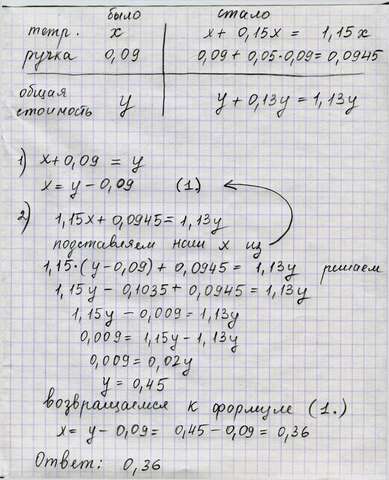 было стало
тетр. x x + 0,15x = 1,15x
ручка 0,09 0,09 + 0,05·0,09 = 0,0945
общая стоимость y y + 0,13y = 1,13y
1) x + 0,09 = y
x = y - 0,09 (1.)
2) 1,15x + 0,0945 = 1,13y
подставляем наш x из
1,15·(y - 0,09) + 0,0945 = 1,13y решаем
1,15y - 0,1035 + 0,0945 = 1,13y
1,15y - 0,009 = 1,13y
0,009 = 1,15y - 1,13y
0,009 = 0,02y
y = 0,45
возвращаемся к формуле (1.)
x = y - 0,09 = 0,45 - 0,09 = 0,36
Ответ: 0,36